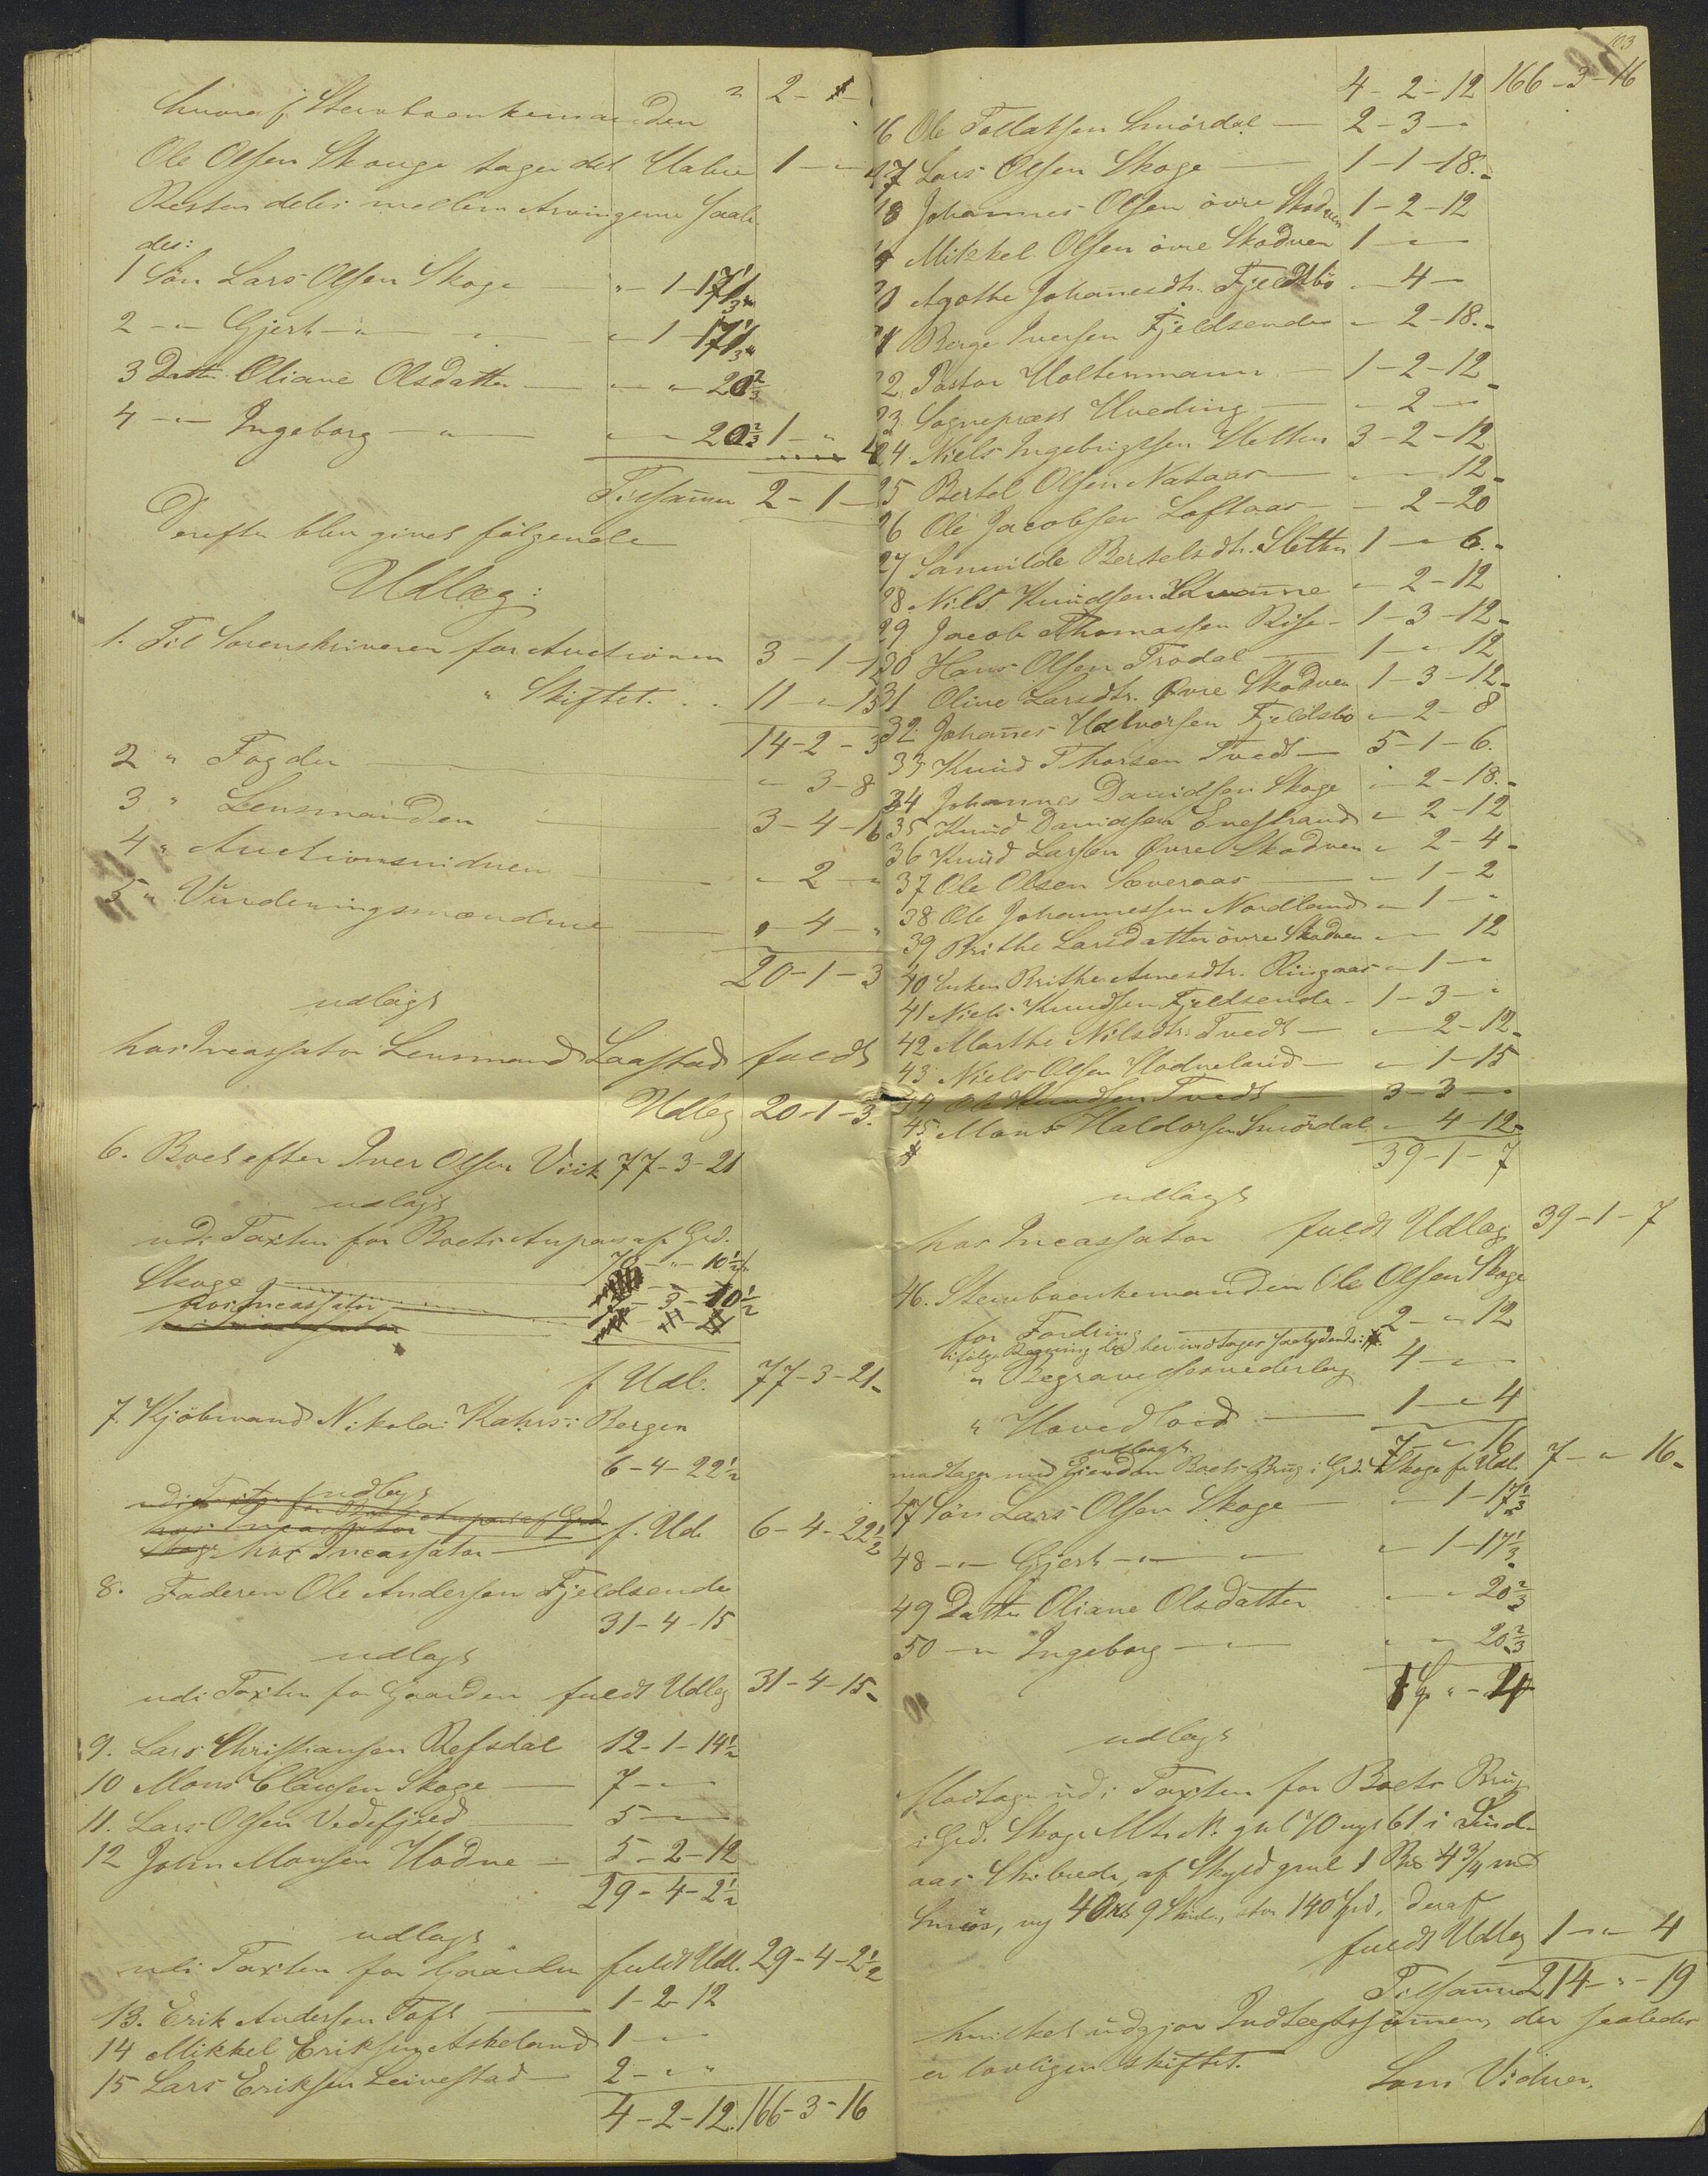 hvoraf Stervboenkemanden " 2 - 1 -
Ole Olsen Skauge tager det Halve 1 - " -
Resten deles mellem Arvingerne saale-
des:
1 Søn Lars Olsen Skage " - 1 - 17 1/3
2 - " - Gjert - " - " - 1 - 17 1/3
3 Datter Oliane Olsdatter - " - " - 20 2/3
4 - " - Ingeborg - " - " - 20 2/3 1 - " -
Tilsammen 2 - 1 -
Derefter blev givet følgende
Udlæg:
1. Til Sorenskriveren for Auctionen 3 - 1 - 12
" Skiftet . . . 11 - " - 15
14 - 2 - 3
2 " Fogden " - 3 - 8
3 " Lensmanden 3 - 4 - 16
4 " Auctionsvidnen " - 2 - "
5 " Vurderingsmændene " - 4 - "
20 - 1 - 3
udlagt
hos Incassator Lensmand Laastad fuldt
Udlæg 20 - 1 - 3.
6. Boet efter Iver Olsen Viik 77 - 3 - 21
udlagt
udi Taxten for Boets Anpart af Grd.
Skage 76 - " - 10 1/2
hos Incassator 1 - 3 - 10 1/2
f Udl. 77 - 3 - 21
7. Kjøbmand Nikolai Kahrs i Bergen
6 - 4 - 22 1/2
udlagt
hos Incassator f. Udl. 6 - 4 - 22 1/2
8. Faderen Ole Andersen Fjeldsende
31 - 4 - 15
udlagt
udi Taxten for Gaarden fuldt Udlæg 31 - 4 - 15
9. Lars Christiansen Refsdal 12 - 1 - 14 1/2
10 Mons Clausen Skage 7 - " -
11. Lars Olsen Vedefjeld 5 - " -
12 John Monsen Hodne 5 - 2 - 12
29 - 4 - 2 1/2
udlagt
udi Taxten for Gaarden fuldt Udl. 29 - 4 - 2 1/2
13. Erik Andersen Toft 1 - 2 - 12
14 Mikkel Eriksen Askeland 1 - " -
15 Lars Eriksen Leivestad 2 - " - "
4 - 2 - 12. 166 - 3 - 16
103
4 - 2 - 12 166 - 3 - 16
16 Ole Tollatsen Smørdal 2 - 3 - "
17 Lars Olsen Skage 1 - 1 - 18.
18 Johannes Olsen øvre Skodven 1 - 2 - 12
19 Mikkel Olsen øvre Skodven 1 - " -
20 Agathe Johannesdtr. Fjeldsbø " - 4 -
21 Børge Iversen Fjeldsende " - 2 - 18.
22. Pastor Holtermann 1 - 2 - 12
23. Sognepræst Hveding " - 2 - "
24. Niels Ingebrigtsen Sletten 3 - 2 - 12
25 Bertel Olsen Nataas " - " 12
26 Ole Jacobsen Loftaas " - 2 - 20
27 Bertelsdtr. Sletten 1 - " 6.
28. Nils Knudsen " - 2 - 12
29 Jacob Thomassen Rise 1 - 3 - 12
30 Hans Olsen Trodal 1 - " 12
31 Oline Larsdtr. Øvre Skodven 1 - 3 - 12
32. Johannes Halvorsen Fjeldsbø " - 2 - 8
33 Knud Thorsen Tvedt 5 - 1 - 6.
34 Johannes Davidsen Skage " - 2 - 18.
35 Knud Davidsen Enestrand " - 2 - 12
36 Knud Larsen Øvre Skodven " 2 - 4
37 Ole Olsen Sæveraas " - 1 - 2
38. Ole Johannessen Nordland " - 1 - "
39 Brithe Larsdatter øvre Skodven " - " 12
40 Enken Brithe Arnesdtr. Ringaas " - 1 - "
41 Niels Knudsen Fjeldsende 1 - 3 - "
42 Marthe Nilsdtr. Tvedt " - 2 - 12
43. Niels Olsen Hodneland " - 1 - 15
44 Ole Knudsen Tvedt 3 - 3 - "
45 Mons Haldorsen Smørdal " - 4 - 12
39 - 1 - 7
udlagt
hos Incassator fuldt Udlæg 39 - 1 - 7
46. Stervboenkemanden Ole Olsen Skage
for Fordring 2 - " 12
ifølge Regning der her indtages saalydende:
" Begravelsesvederlag 4 - " -
" Hovedlod 1 - " 4
7 - " 16
udlagt
modtager udi Boets Brug i Grd. Skage f Udl. 7 - " 16
47 Søn Lars Olsen Skage " - 1 - 17 1/3
48 - " - Gjert - " - " - 1 - 17 1/3
49 Datter Oliane Olsdatter " - " 20 2/3
50 - " Ingeborg - " - " - " 20 2/3
1 " - 4
udlagt
Modtage udi Taxten for Boets Brug
i Grd. Skage Mtr. N. gml 70 nyt 61 i Lind-
aas Skibrede, af Skyld gml 1 Bis 4 3/4 mrk
Smør, ny 4 Ort 9 Skil., stor 140 Spd., deraf
fuldt Udlæg 1 - " - 4
Tilsammen 214 - " - 19
hvilket udgjør Indtægtssummen, der saaledes
er lovligen skiftet.
Som Vidner.